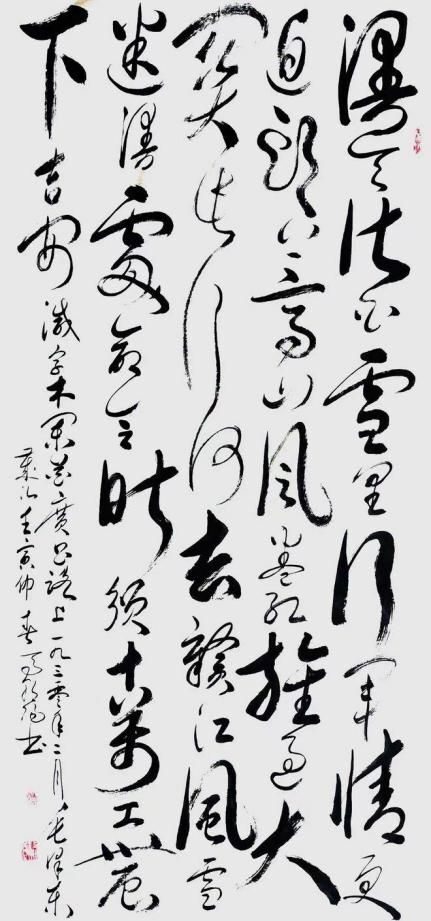 漫天皆白雪里行军情更
迫头上高山风卷红旗过大
关此行何去赣江風雪
迷漫處命令昨颁十萬工農
下吉安
減字木兰花廣昌路上一九三零年二月毛泽东
岁次壬寅仲春书